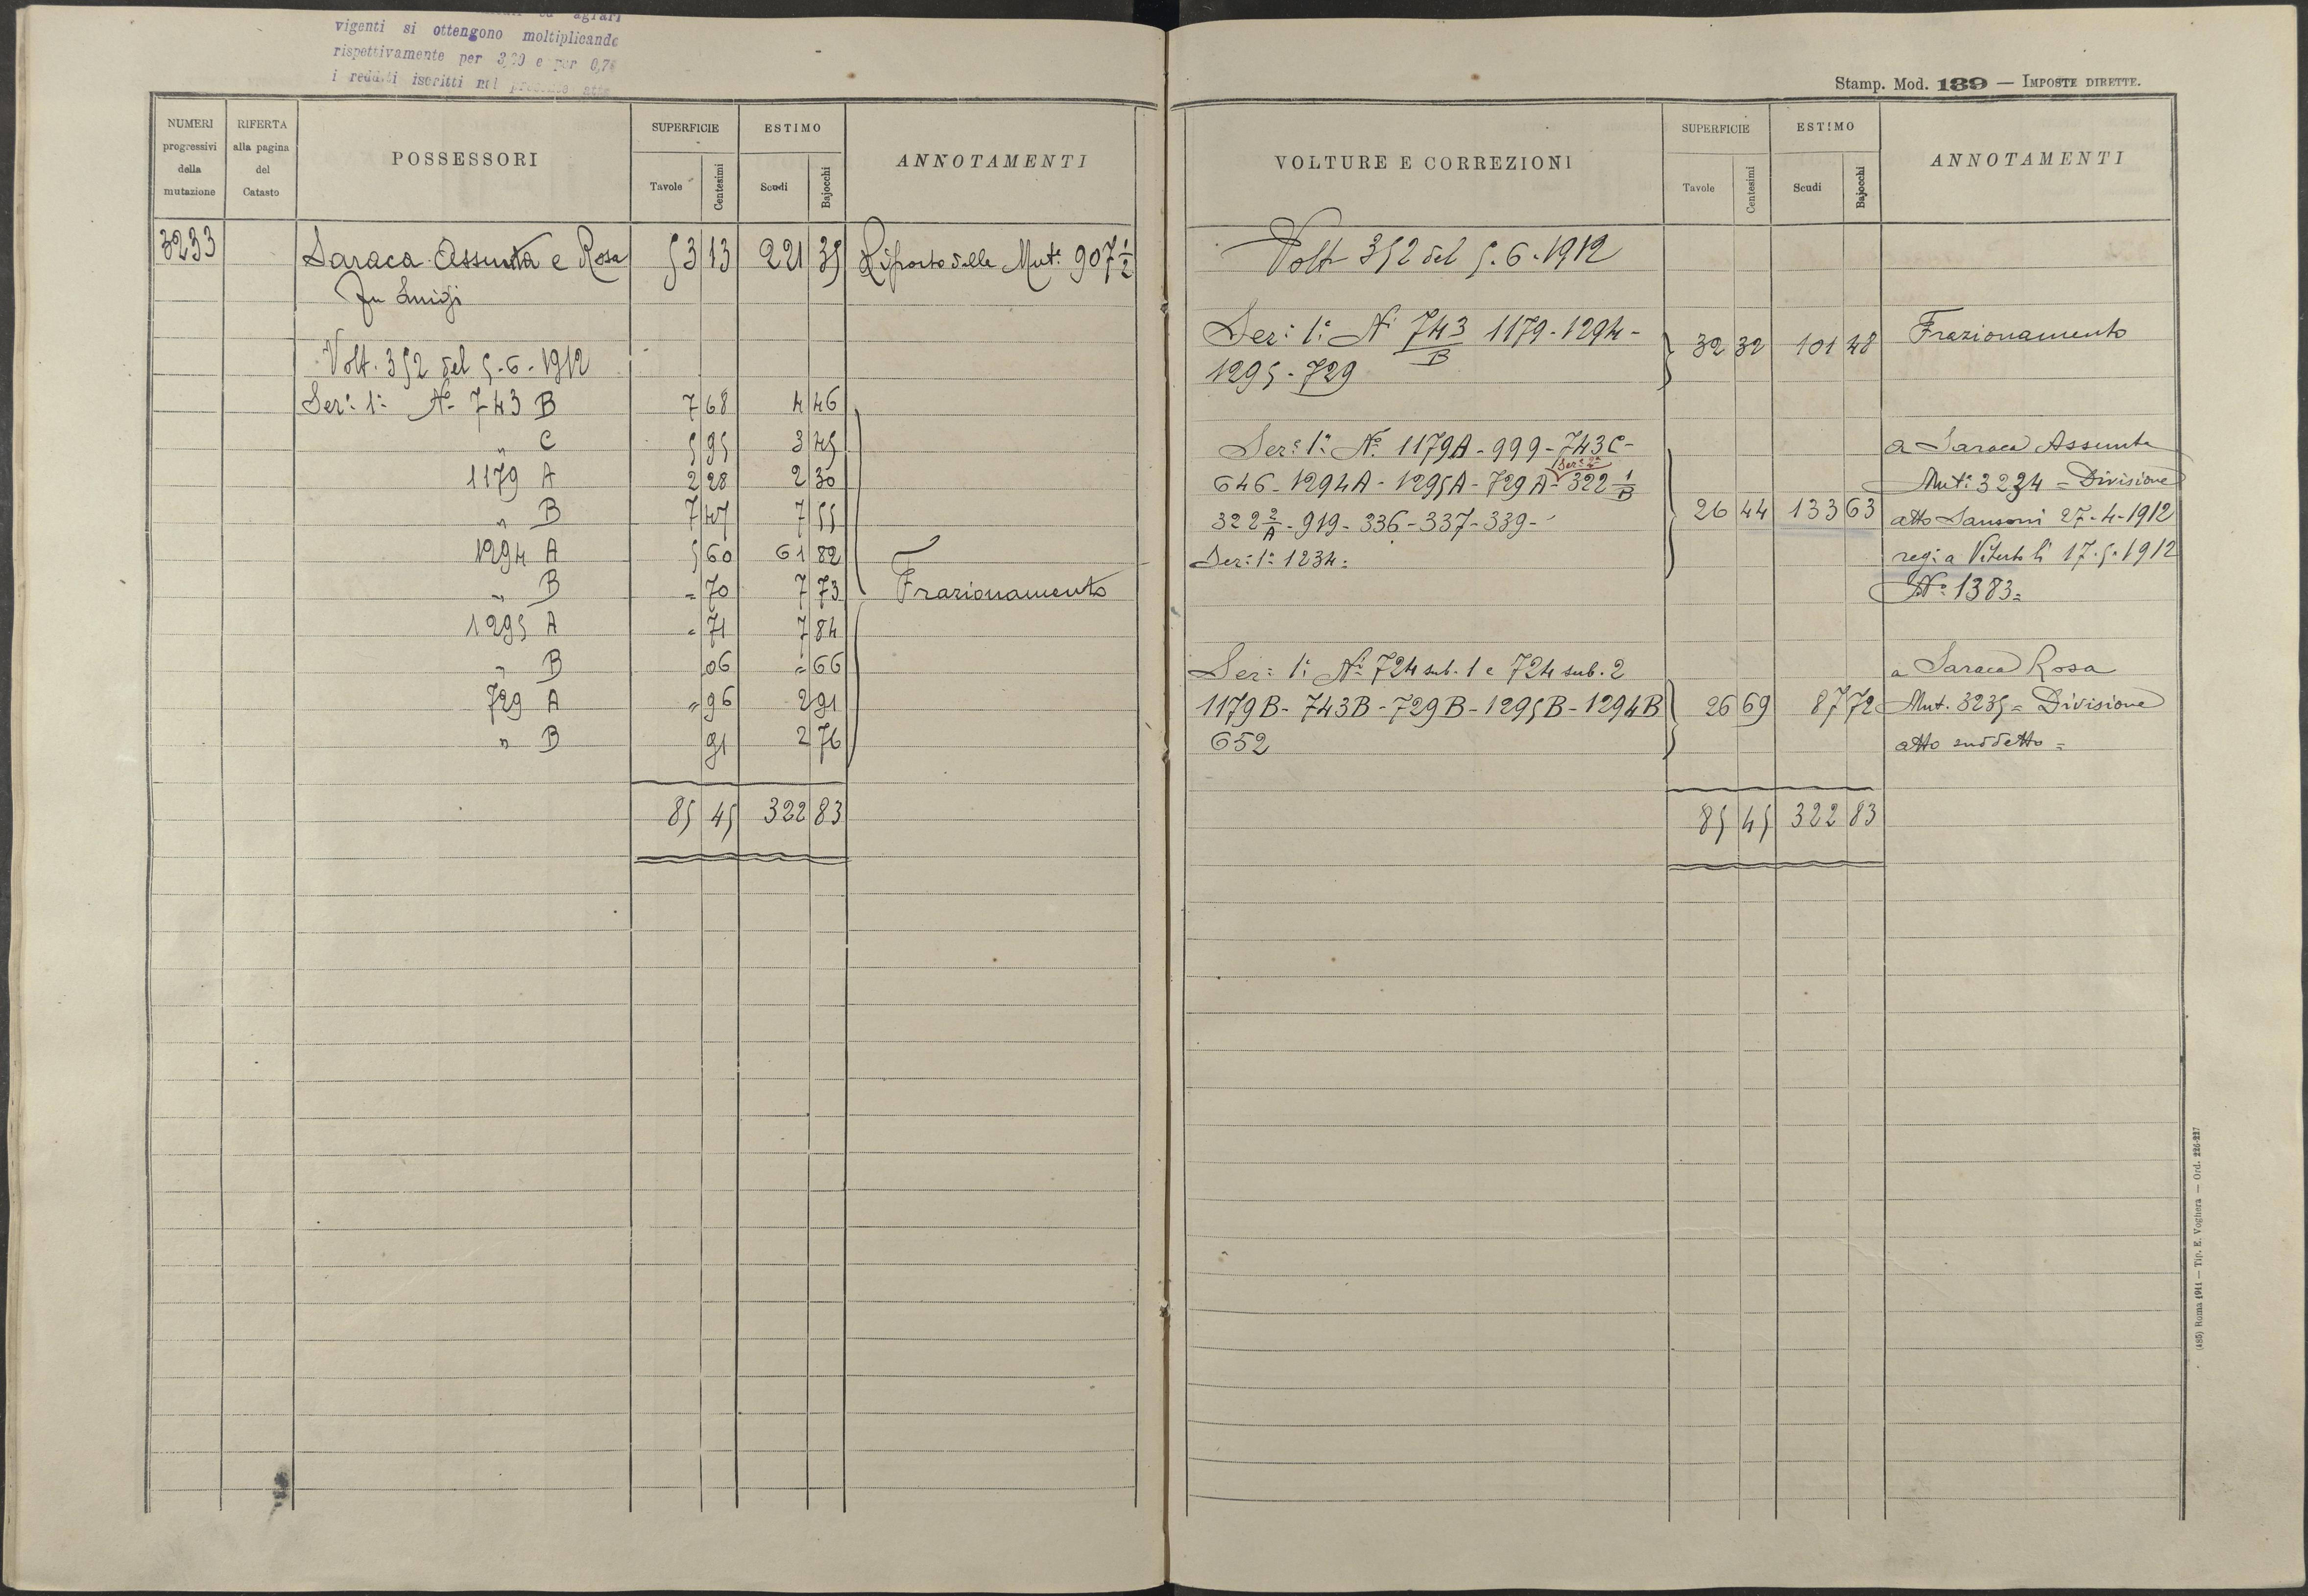 agrari
vigenti si ottengono moltiplicando
rispettivamente per 3,20 e per 0,78
i redditi iscritti nel presente atto
Stamp. Mod. 139 — IMPOSTE DIRETTE.
NUMERI progressivi della mutazione
RIFERTA alla pagina del Catasto
POSSESSORI
SUPERFICIE
Tavole
Centesimi
ESTIMO
Scudi
Bajocchi
ANNOTAMENTI
3233 Saraca Assunta e Rosa 53 13 221 35 Riporto dalla Mut.e 907 1/2
fu Luigi
Volt. 352 del 5-6-1912
Ser: 1: No 743 B 7 68 4 46
„ C 5 95 3 45
1179 A 2 28 2 30
„ B 7 47 7 55
1294 A 5 60 61 82
„ B = 70 7 73 Frazionamento
1295 A " 71 7 84
„ B 06 = 66
729 A " 96 2 91
„ B 91 2 76
85 45 322 83
VOLTURE E CORREZIONI
SUPERFICIE
Tavole
Centesimi
ESTIMO
Scudi
Bajocchi
ANNOTAMENTI
Volt 352 del 5.6.1912
Ser: 1: Ni 743/B 1179-1294-
1295-729 32 32 101 48 Frazionamento
Ser: 1: No 1179A-999-743C- a Saraca Assunta
Ser: 2a
646-1294A-1295A-729A-322 1/B Mut: 3234 = Divisione
322 2/A-919-336-337-339- 26 44 133 63 atto Sansoni 27-4-1912
Ser: 1: 1234= reg: a Viterbo li 17.5.1912
No 1383=
Ser: 1: Ni 724 sub. 1 e 724 sub. 2 a Saraca Rosa
1179B-743B-729B-1295B-1294B 26 69 87 72 Mut. 3235 = Divisione
652 atto suddetto =
85 45 322 83
(485) Roma 1911 — Tip. E. Voghera — Ord. 226-227